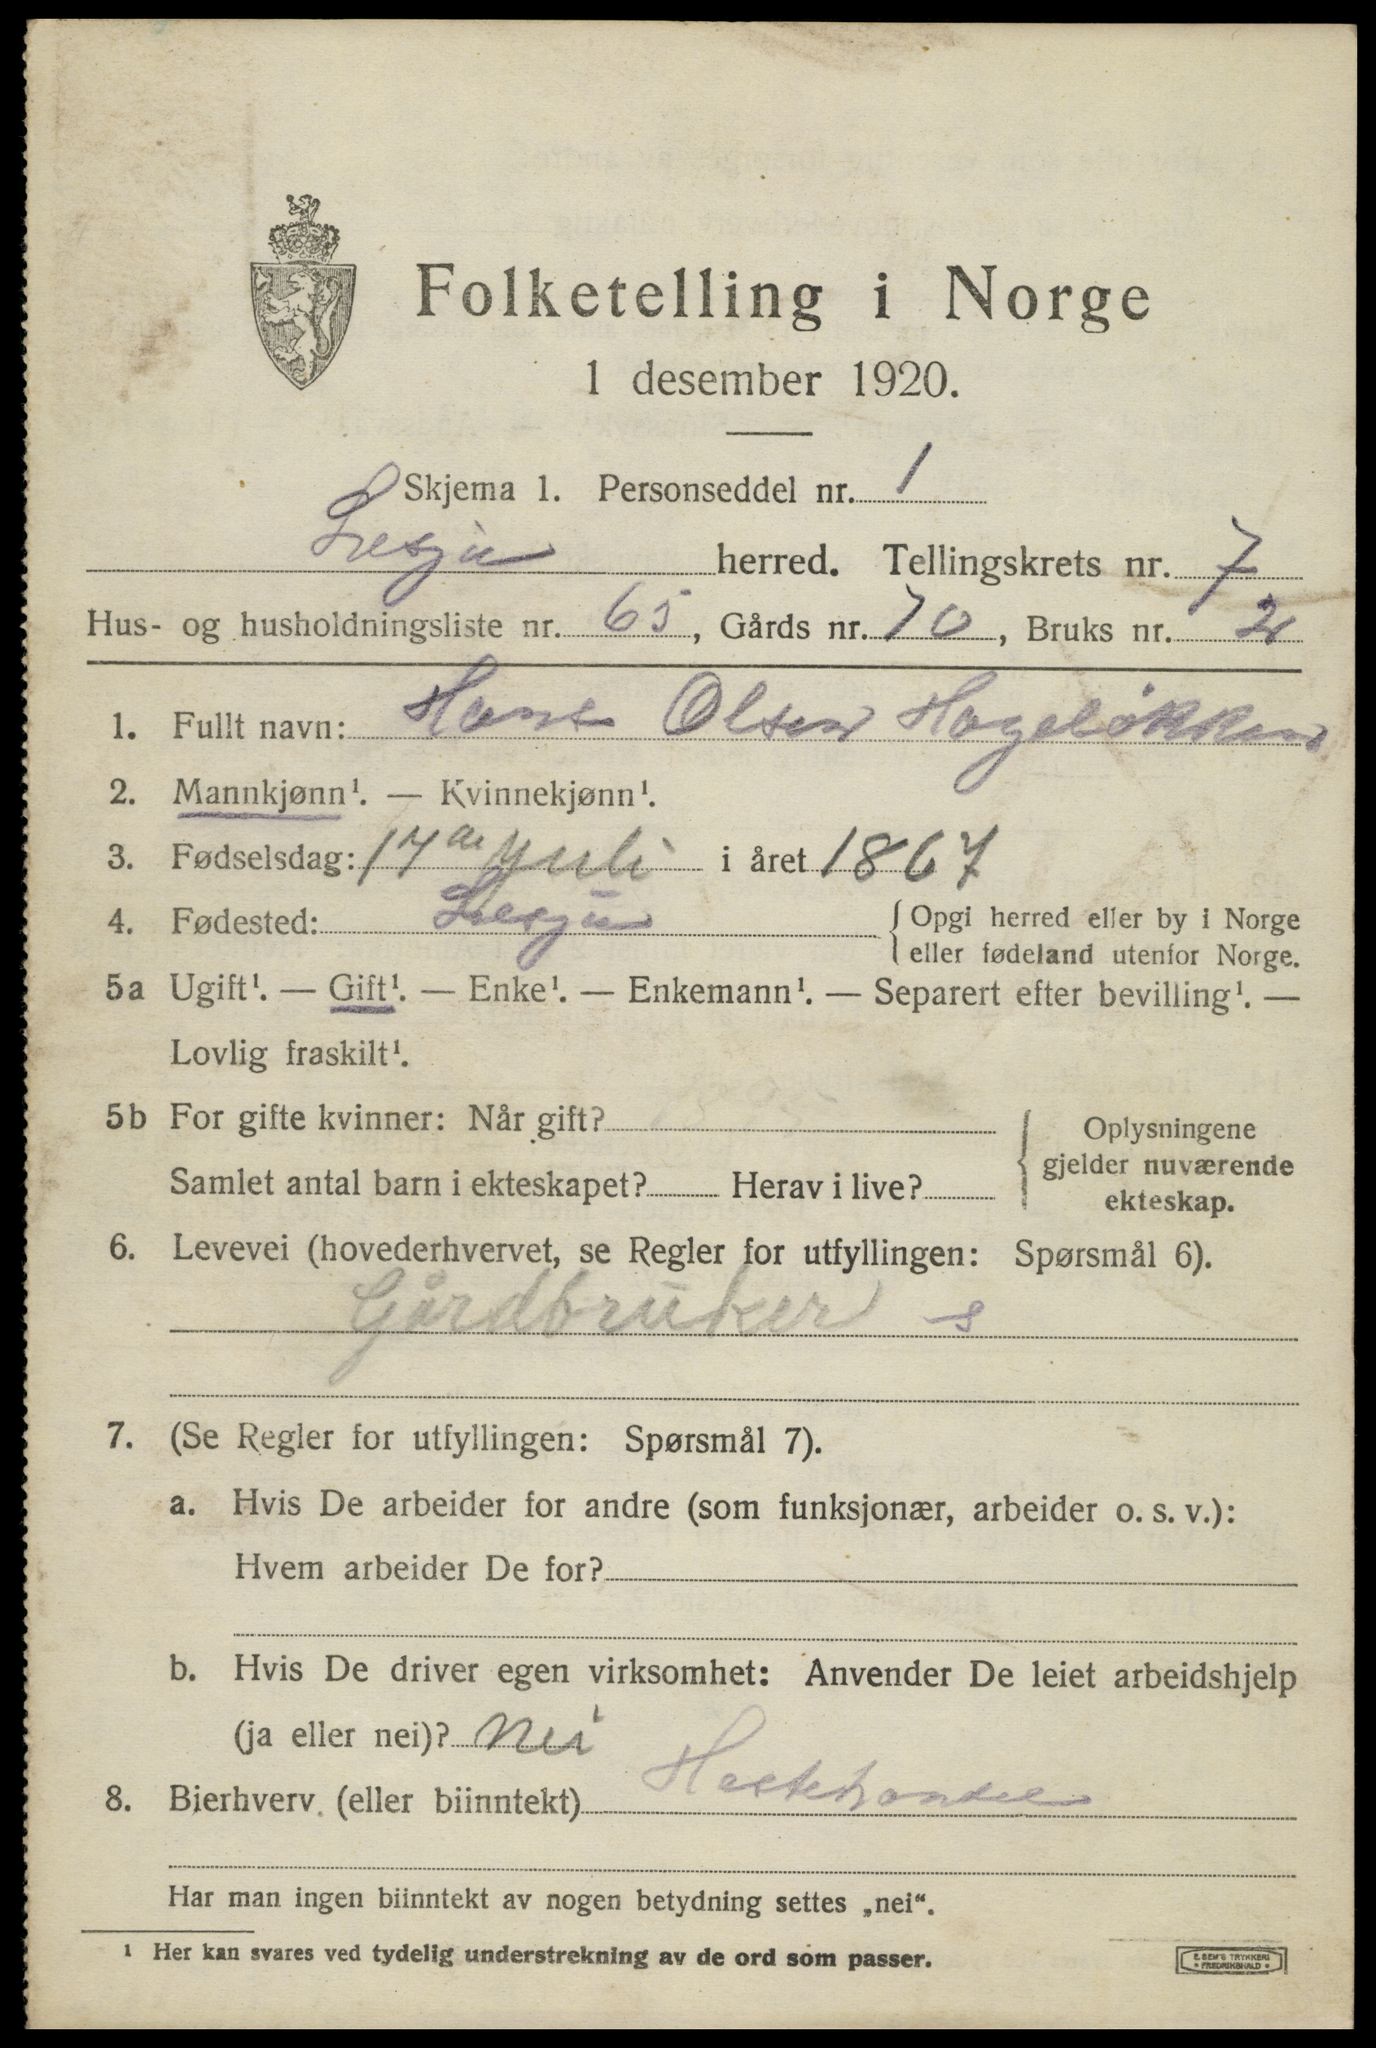 Folketelling i Norge
1 desember 1920.
Skjema 1. Personseddel nr. 1
Lesja herred. Tellingskrets nr. 7
Hus- og husholdningsliste nr. 65, Gårds nr. 70, Bruks nr. 2
1. Fullt navn: Hans Olsen Hageløkken
2. Mannkjønn¹. — Kvinnekjønn¹.
3. Fødselsdag: 17de juli i året 1867
4. Fødested: Lesja { Opgi herred eller by i Norge
eller fødeland utenfor Norge.
5a Ugift¹. — Gift¹. — Enke¹. — Enkemann¹. — Separert efter bevilling¹. —
Lovlig fraskilt¹.
5b For gifte kvinner: Når gift?
Samlet antal barn i ekteskapet? Herav i live?
Oplysningene
gjelder nuværende
ekteskap.
6. Levevei (hovederhvervet, se Regler for utfyllingen: Spørsmål 6).
Gårdbruker s
7. (Se Regler for utfyllingen: Spørsmål 7).
a. Hvis De arbeider for andre (som funksjonær, arbeider o. s. v.):
Hvem arbeider De for?
b. Hvis De driver egen virksomhet: Anvender De leiet arbeidshjelp
(ja eller nei)? Nei
8. Bierhverv (eller biinntekt) Hestehandel
Har man ingen biinntekt av nogen betydning settes „nei“.
¹ Her kan svares ved tydelig understrekning av de ord som passer.
E. SEM'S TRYKKERI
FREDRIKSHALD